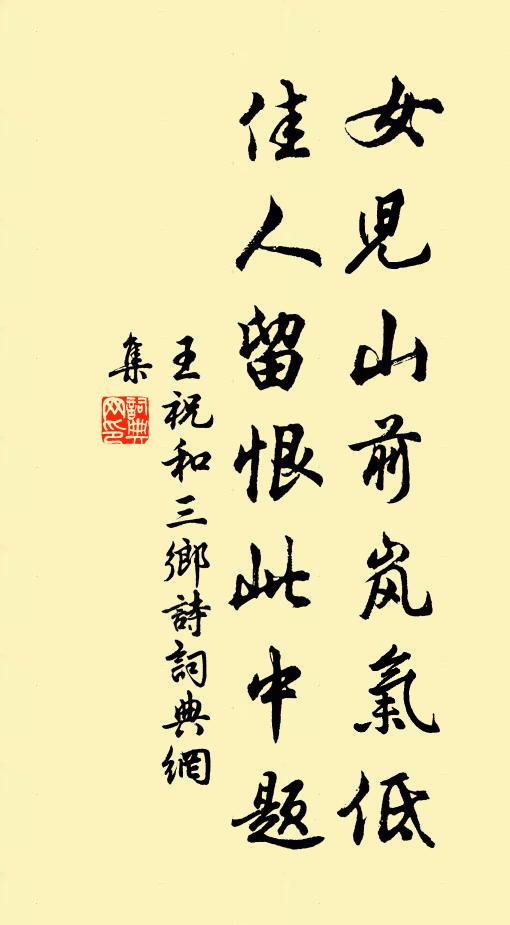 女児山前岚氣低
佳人留恨此中題
王祝和三鄉詩詞典網
集
詞典
网印